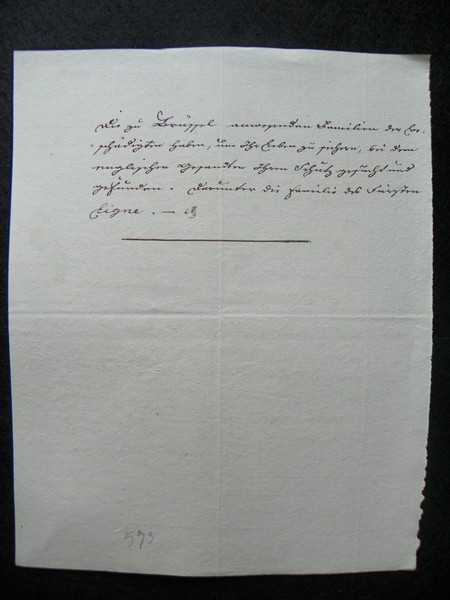 Die zu Brüssel anwesenden Familien der Be-
schädigten haben, um Ihr Leben zu sichern, bei dem
englischen Gesandten Ihren Schutz gesucht und
gefunden. Darunter die Familie des Fürsten
Ligne. —
593